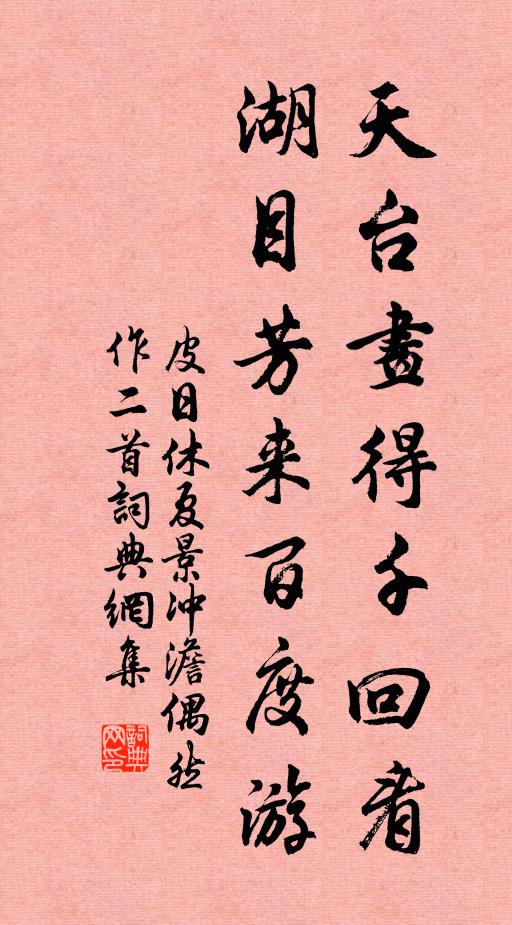 天台畫得千回看
湖目芳来百度游
皮日休夏景冲澹偶然
作二首詞典網集
詞典
网印